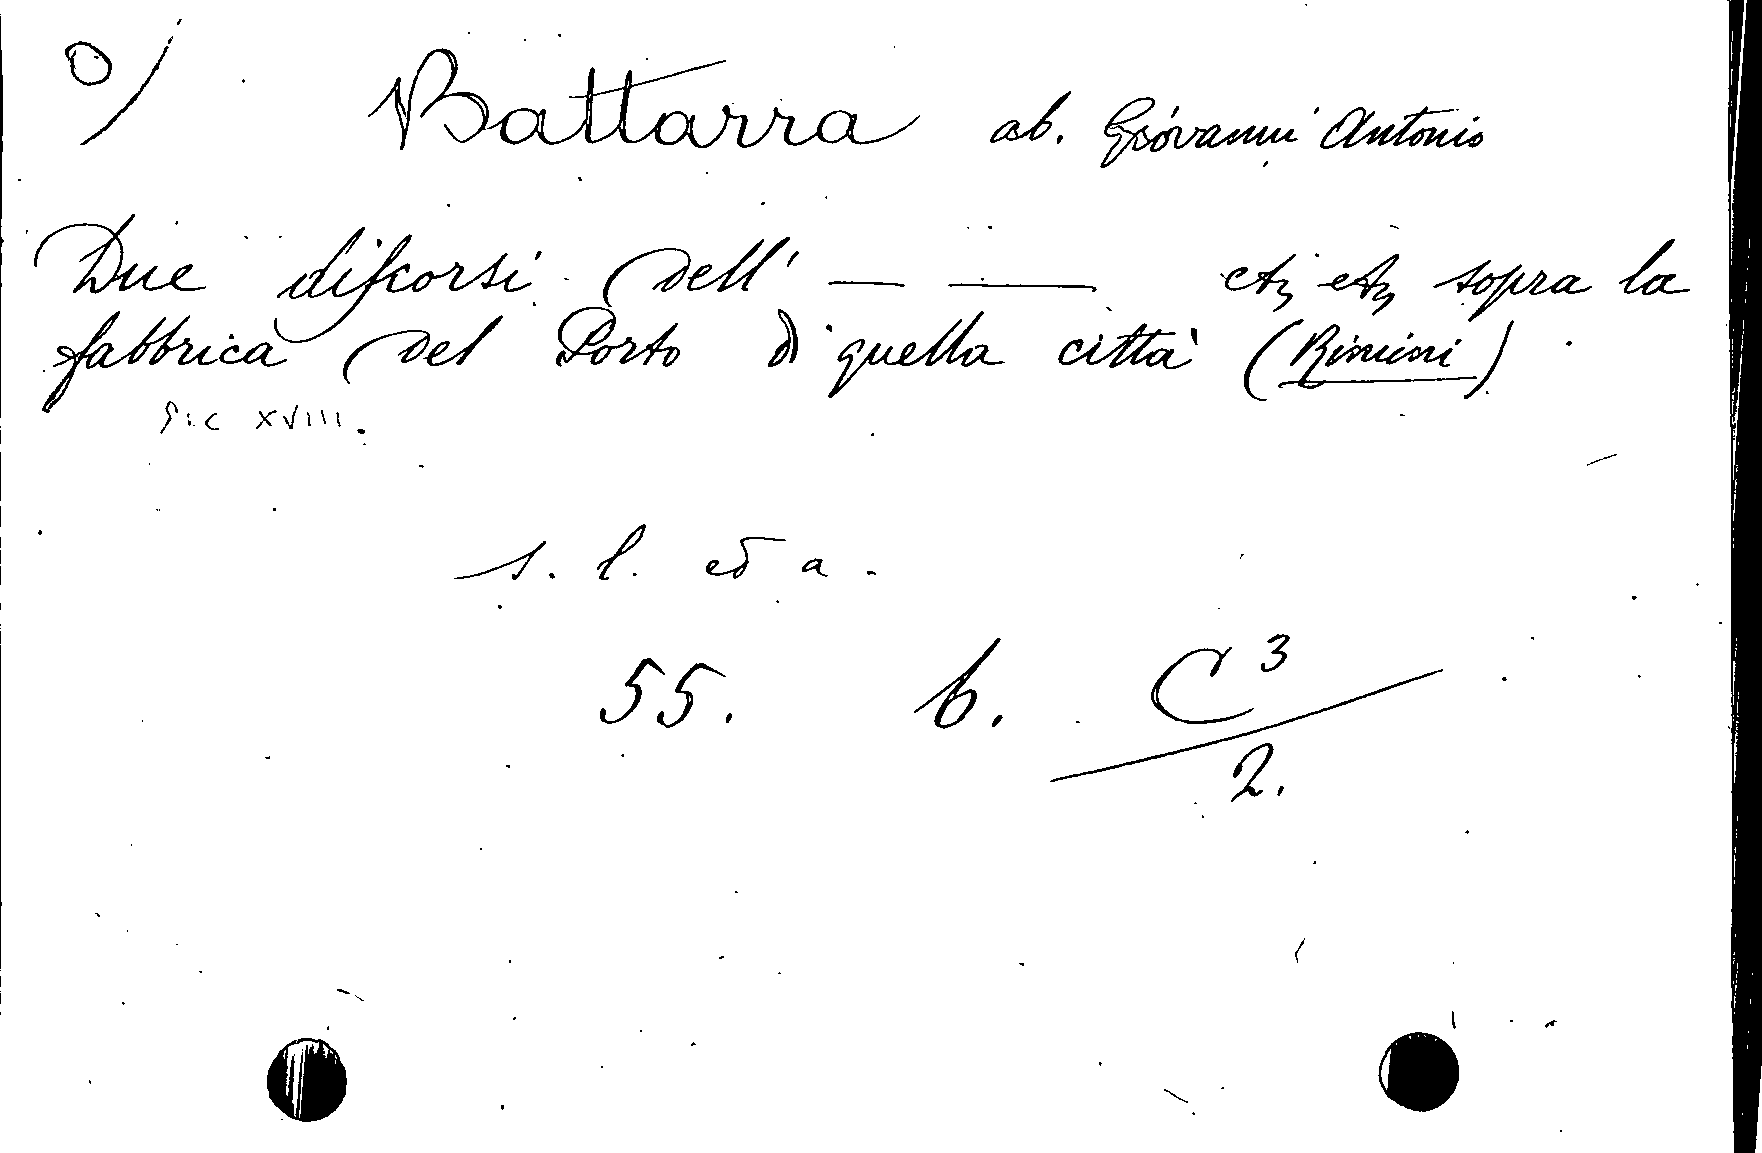 o/
Battarra ab. Giovanni Antonio
Due discorsi dell' — — etc, etc, sopra la
fabbrica del Porto di quella città (Rimini)
Sec XVIII.
s. l. ed a.
55. b. C³
2.